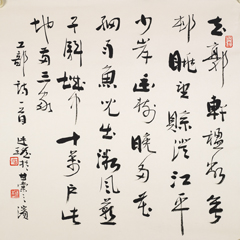 去郭軒楹敞無
村眺望賒澄江平
少岸幽樹晚多花
細雨魚兒出微風燕
子斜城中十萬戶此
地兩三家
工部詩一首 於甘棠之濱